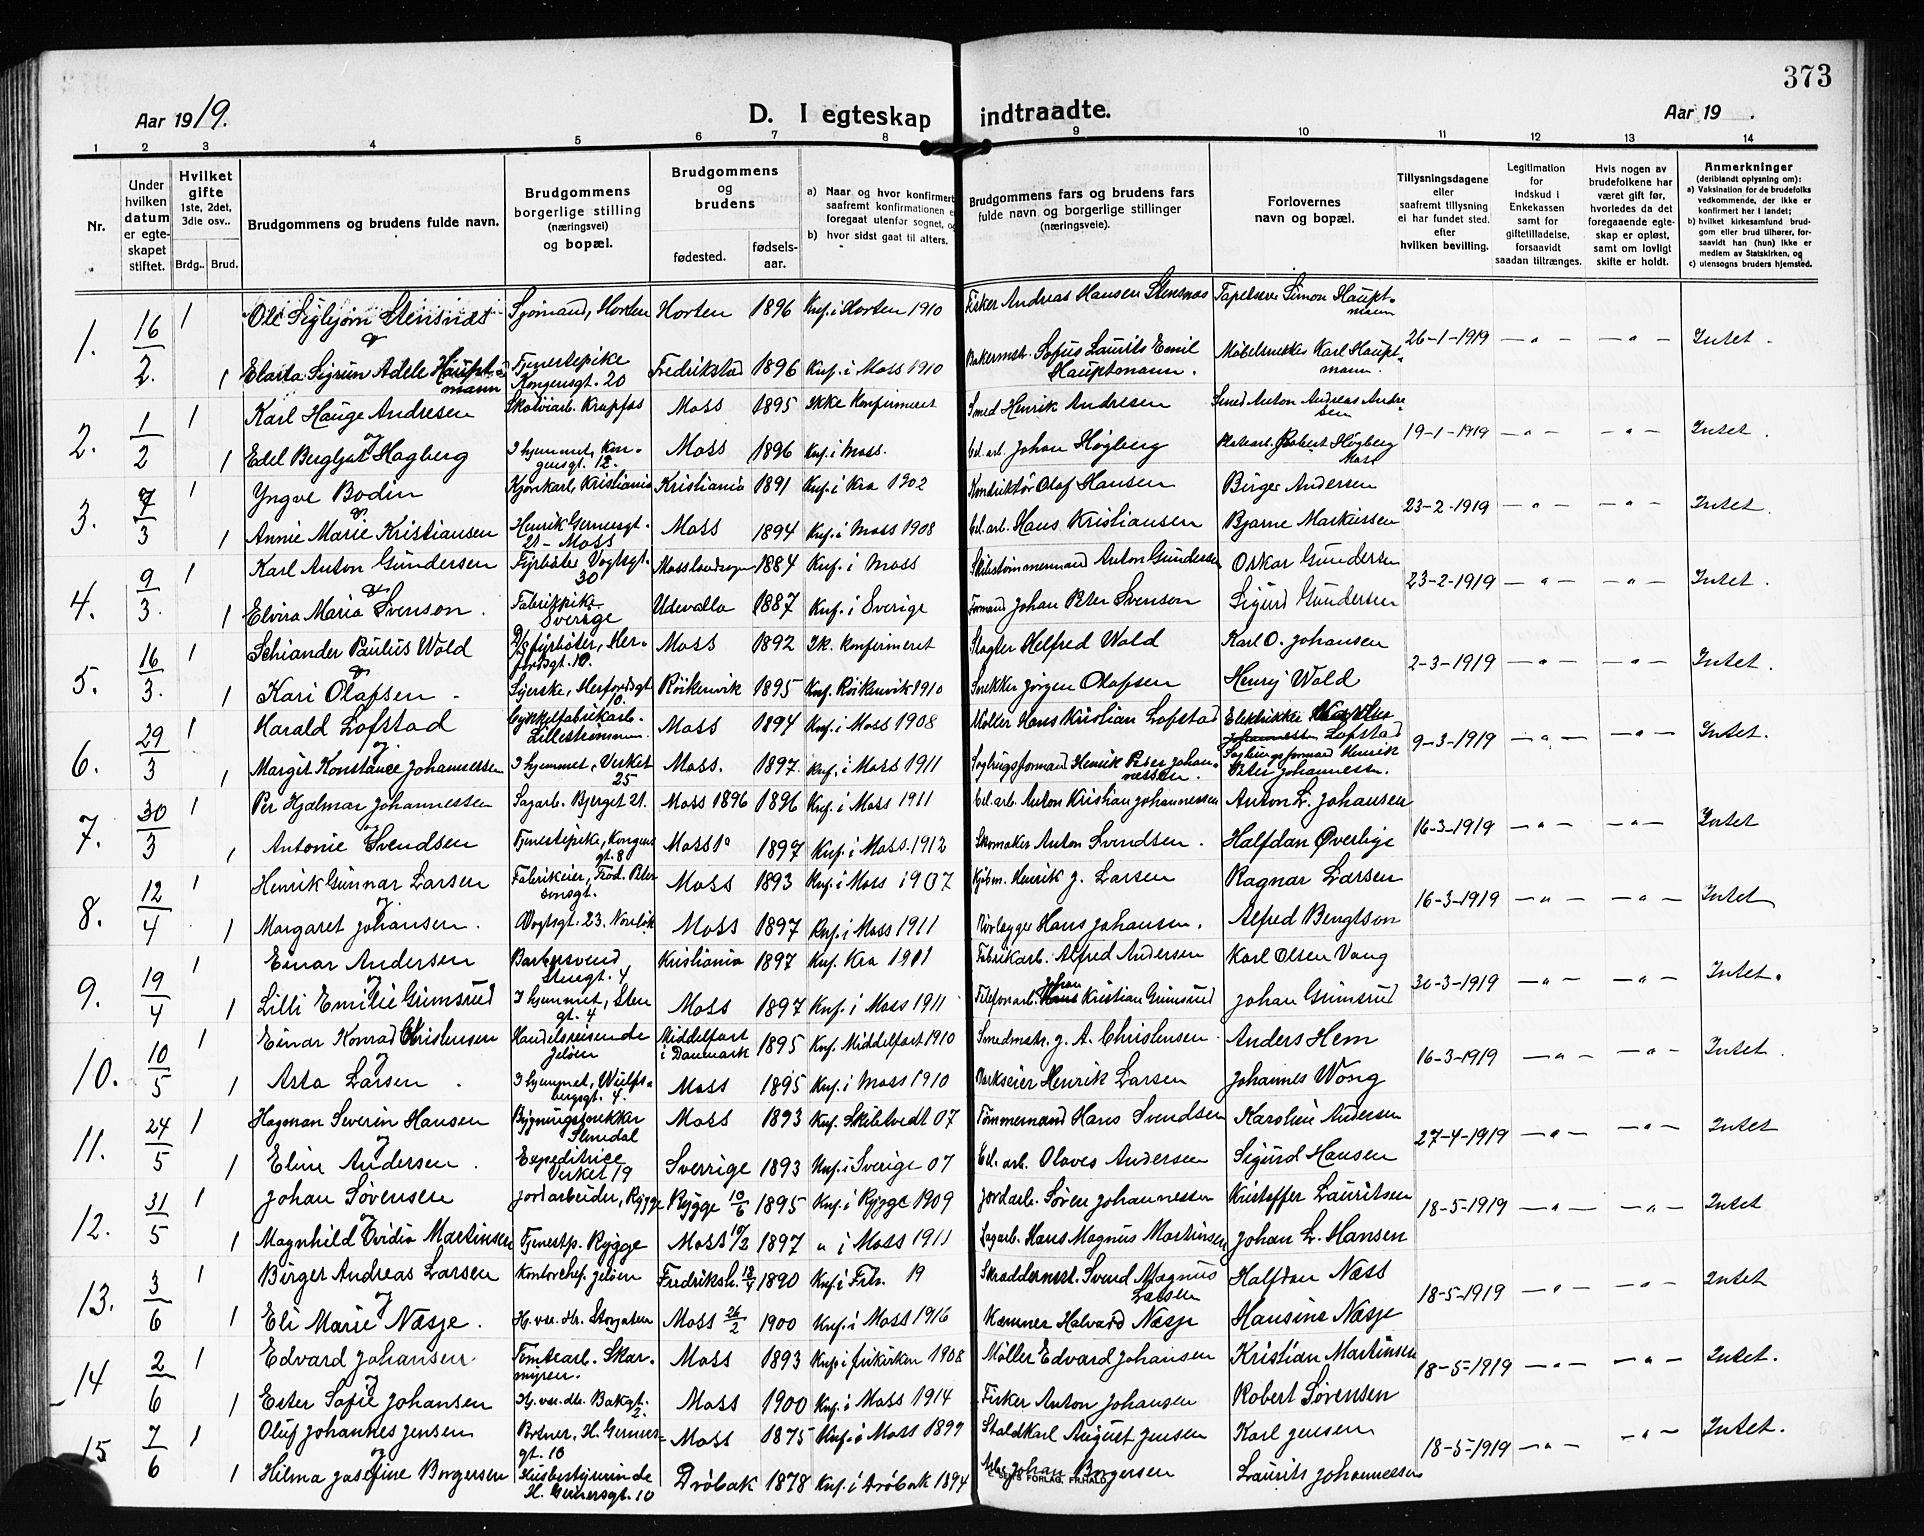 373
Aar 1919.
D. I egteskap indtraadte.
Aar 19 .
1 2 3 4 5 6 7 8 9 10 11 12 13 14
Nr.
Under hvilken datum er egteskapet stiftet.
Hvilket gifte 1ste, 2det, 3die osv..
Brdg.. Brud.
Brudgommens og brudens fulde navn.
Brudgommens borgerlige stilling (næringsvei) og bopæl.
Brudgommens og brudens
fødested. fødsels-aar.
a) Naar og hvor konfirmert, saafremt konfirmationen er foregaat utenfor sognet, og
b) hvor sidst gaat til alters.
Brudgommens fars og brudens fars fulde navn og borgerlige stillinger (næringsveie).
Forlovernes navn og bopæl.
Tillysningsdagene eller saafremt tillysning ei har fundet sted. efter hvilken bevilling.
Legitimation for indskud i Enkekassen samt for giftetilladelse, forsaavidt saadan tiltrænges.
Hvis nogen av brudefolkene har været gift før, hvorledes da det foregaaende egteskap er opløst, samt om lovligt skifte er holdt.
Anmerkninger (deriblandt oplysning om): a) Vaksination for de brudefolks vedkommende, der ikke er konfirmert her i landet; b) hvilket kirkesamfund brudgom eller brud tilhører, forsaavidt han (hun) ikke er medlem av Statskirken, og c) utensogns bruders hjemsted.
1. 16/2. 1 Ole Sigbjørn Stensnæs Sjømand, Horten Horten 1896 Knf. i Horten 1910 Fisker Andreas Hansen Stensnæs Tapetserer Simon Hauptmann 26-1-1919 — „ — — „ — Intet.
og
1 Sigrun Adele Hauptmann Tjenestepike Kongensgt. 20 Fredrikstad 1896 Knf. i Moss 1910 Bakermst. Sofus Laurits Emil Hauptmann. Møbelsnekker Karl Hauptmann.
2. 1/2 1 Karl Hauge Andresen Moss 1895 Ikke konfirmeret Smed Henrik Andresen Smed Anton Andreas Andresen 19-1-1919 — „ — — „ — Intet.
og
1 Edel Bergljot Høgberg I hjemmet, Kongensgt. 12. Moss 1896 Knf. i Moss. Bel. arb. Johan Høgberg Robert Høgberg Moss
3. 7/3 1 Yngve Bodin Kristiania Kristiania 1891 Knf. i Kra 1902 Konduktør Olaf Hansen Birger Andersen 23-2-1919 — „ — — „ — Intet.
og
1 Annie Marie Kristiansen Henrik Gernersgt. 21 - Moss Moss 1894 Knf. i Moss 1908 Bel. arb. Hans Kristiansen Bjarne Markussen
4. 9/3. 1 Karl Anton Gundersen Fyrbøter Vogtsgt. 30 Moss landsogn 1884 Knf. i Moss Skibstømmermand Anton Gundersen Oskar Gundersen 23-2-1919 — „ — — „ — Intet.
og
1 Elvira Maria Svenson. Fabrikpike Sverige Udevalla 1887 Knf. i Sverige Formand Johan Peter Svenson Sigurd Gundersen
5. 16/3. 1 Schiander Paulus Wold D/S fyrbøter, Herfordsgt. 10. Moss 1892 Ik. konfirmeret Slagter Helfred Wold Karl O. Johansen 2-3-1919 — „ — — „ — Intet.
og
1 Kari Olafsen. Syerske, Herfordsgt. 10. Røikenvik 1895 Knf. Røikenvik 1910 Snekker Jørgen Olafsen Henry Wold
6. 29/3 1 Harald Lofstad Cykkelfabrikarb. Lillestrømmen. Moss 1894 Knf. i Moss 1908 Møller Hans Kristian Lofstad Elektrikker Lofstad 9-3-1919 — „ — — „ — Intet.
og
1 Margit Konstance Johannessen I hjemmet, Verket 25 Moss. 1897. Knf. i Moss 1911 Sagbrugsformand Henrik Peter Johannessen. Sagbrugsformand Henrik Peter Johannessen.
7. 30/3 1 Per Hjalmar Johannessen Sagarb. Bjerget 21. Moss 1896 1896 Knf. i Moss 1911 Bel. arb. Anton Kristian Johannessen Anton L. Johansen 16-3-1919 — „ — — „ — Intet
og
1 Antonie Svendsen Tjenestepike, Kongensgt. 8 Moss 1897 Knf. i Moss. 1912 Skomaker Anton Svendsen. Halfdan Øverbye
8. 12/4 1 Henrik Gunnar Larsen Fabrikeier, Fred. Petersensgt. Moss 1893 Knf. i Moss 1907 Kjøbm. Henrik J. Larsen Ragnar Larsen 16-3-1919 — „ — — „ — Intet
og
1 Margaret Johansen. Vogtsgt. 23. Moss 1897 Knf. i Moss 1911 Rørlægger Hans Johansen. Alfred Bengtson
9. 19/4 1 Einar Andersen Barbersvend Stengt. 4 Kristiania 1897 Knf. Kra 1911 Fabrikarb. Alfred Andersen Karl Olsen Vang 30-3-1919 — „ — — „ — Intet.
og
1 Lilli Emilie Grimsrud I hjemmet, Stengt. 4 Moss 1897 Knf. i Moss 1911 Telefonarb. Johan Kristian Grimsrud Johan Grimsrud
10. 10/5 1 Einar Konrad Christensen Handelsreisende Jeløen Middelfart i Danmark 1895 Knf. Middelfart 1910 Smedmstr. J. A. Christensen. Anders Hem 16-3-1919 — „ — — „ — Intet.
og
1 Asta Larsen. I hjemmet, Wulfsbergsgt. 4. Moss 1895 Knf. i Moss 1910 Verkseier Henrik Larsen Johannes Wong
11. 24/5 1 Hagman Severin Hansen Bygningssnekker Moss 1893 Knf. Skibtvedt 07 Tømmermand Hans Svendsen Karoline Andersen 27-4-1919 — „ — — „ — Intet
og
1 Eline Andersen. Expeditrice Verket 19 Sverrige 1893 Knf. i Sverige 07 Bel. arb. Olaves Andersen Sigurd Hansen
12. 31/5 1 Johan Sørensen Jordarbeider, Rygge Rygge 10/6 1895 Knf. i Rygge 1909 Jordarb. Søren Johannessen Kristoffer Lauritsen 18-5-1919 — „ — — „ — Intet
og
1 Magnhild Ovidia Martinsen Tjenestp. Rygge Moss 1897 „ i Moss 1911 Sagarb. Hans Magnus Martinsen Johan L. Hansen
13. 3/6 1 Birger Andreas Larsen Kontorchef. Jeløen Fredriksh. 1890 Knf. i Frh. 19 Skræddermst. Svend Magnus Larsen Halfdan Næss 18-5-1919 — „ — — „ — Intet
og
1 Eli Marie Næsje. H. vær. dtr. Storgaten Moss 26/2 1900 Knf. i Moss 1916 Kæmner Halvard Næsje Hansine Næsje
14 2/6 1 Edvard Johansen Tomtearb. Skarmyren. Moss 1893 Knf. i frikirken 1908 Møller Edvard Johansen Kristian Martinsen 18-5-1919 — „ — — „ — Intet.
og
1 Ester Sofie Johansen Hj. vær. dtr. Bakgt. 2. Moss 1900 Knf. i Moss 1914 Fisker Anton Johansen Robert Sørensen
15 7/6 1 Oluf Johannes Jensen Portner, H. Gernersgt. 10 Moss 1875 Knf. i Moss 1899 Staldkarl August Jensen Karl Jensen 18-5-1919 — „ — — „ — Intet.
og
1 Hilma Josefine Borgersen Husbestyrerinde H. Gernersgt. 10 Drøbak 1878 Knf. i Drøbak 1894 Arb. Johan Borgersen Laurits Johannessen
FORLAG, FR.HALD